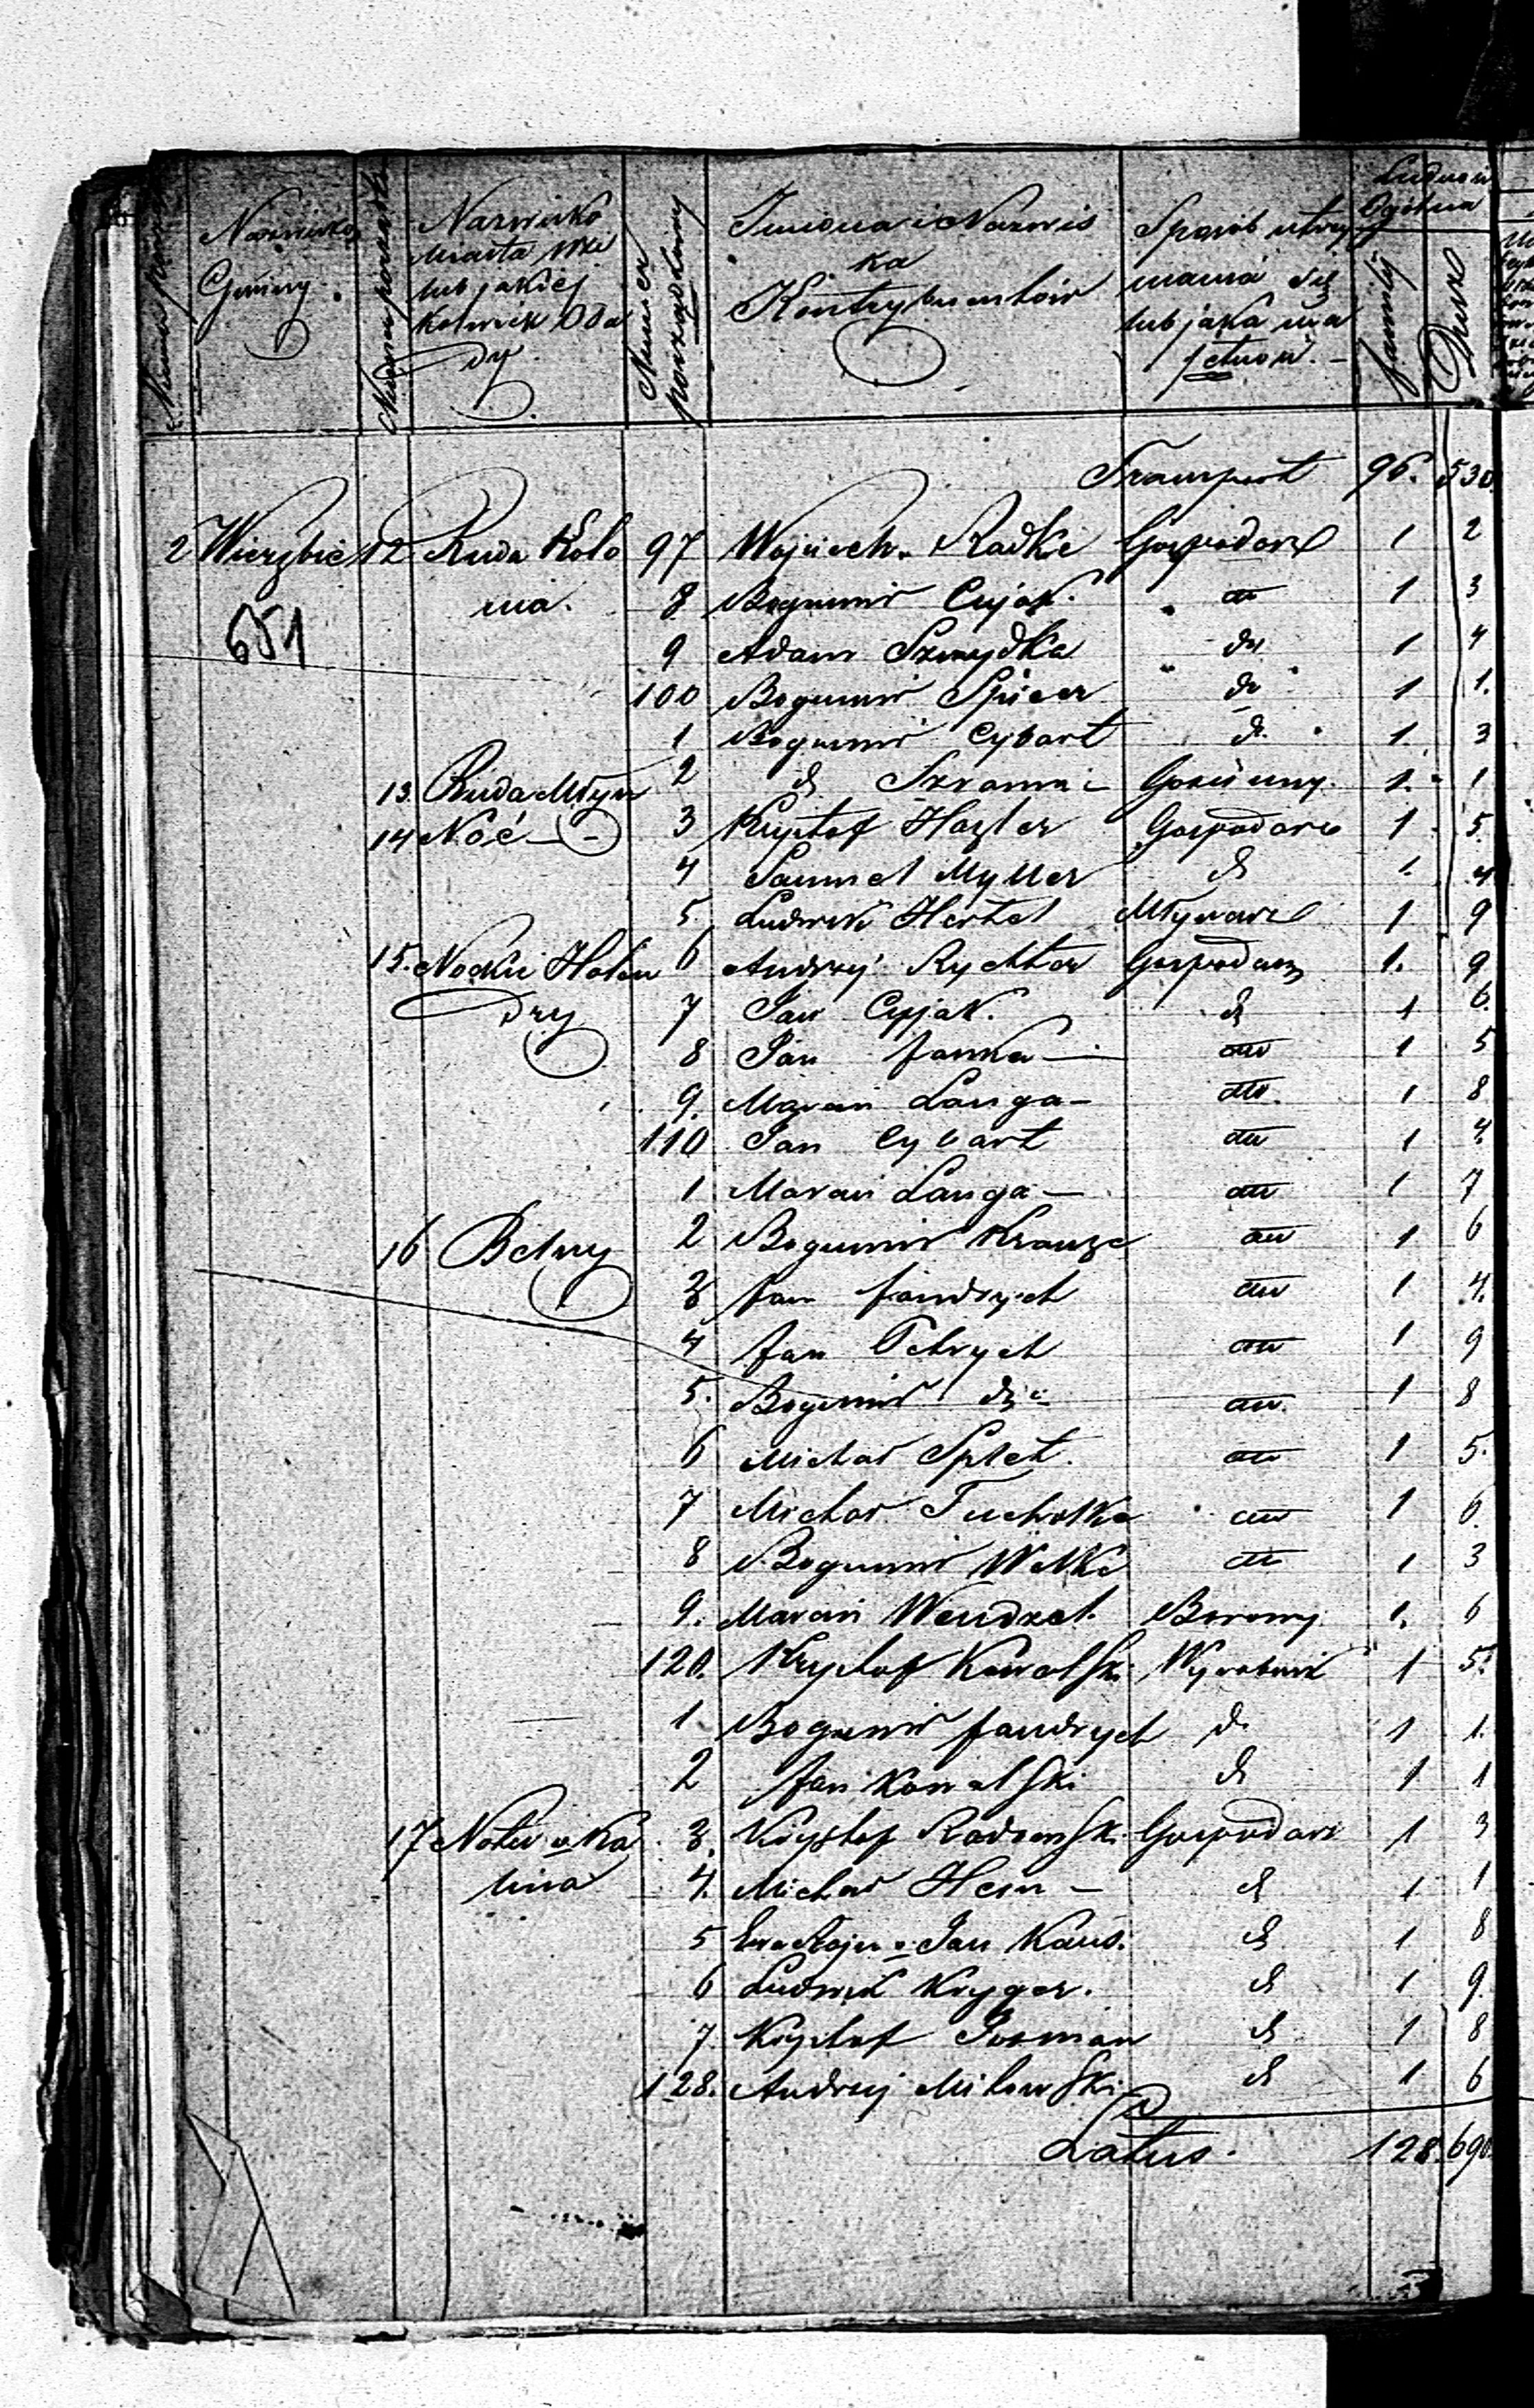 Numer porządk
Nazwisko Gminy
Numer porządk
Nazwisko Miasta Wsi lub jakiej kolwiek Osady
Numer porządkowy
Imiona i Nazwiska Kontrybuentów
Sposób utrzymania się lub jaka ma
Ludność Ogólna
familij
Dusz
Transport 96. 530.
2 Wierzbie 12 Ruda Kolo 97 Wojciech Radke Gospodarz 1 2
nia. 8 Bogumił Cujak. dto 1 3
651 9 Adam Szmydka do 1 4
100 Bogumił Spicer do 1 1.
1 Bogumił Cybart do 1. 3
13. Ruda Młyn 2 do Szrama Gościnny. 1. 1
14 Noć 3 Krysztof Hazler Gospodarz 1 5
4 Samuel Myller do 1. 4
5 Ludwik Hertel Młynarz 1 9
15. Nockie Holen 6 Andrzej Rychter Gospodarz 1. 9
dry 7 Jan Cyjak. do 1 6.
8 Jan Janka dto 1 5
9. Marcin Langa dto. 1 8
110 Jan Cybart dto 1 4.
1 Marcin Langa dto 1 7
16 Behny 2 Bogumił Krauze dto 1 6
3 Jan Jandrych dto 1 4.
4 Jan Petrych dto 1 9
5. Bogumił do dto. 1 8
6 Michał Splet. dto 1 5.
7 Michał Tucholka dto 1 6.
8 Bogumił Welke dto 1 3
9. Marcin Wendzel. Borowy. 1. 6
120. Krysztof Kowalski Wyrobnik 1 5.
1 Bogumił Jandrych do 1 1.
2 Jan Kowalski do 1 1
17 3. Krysztof Radomski Gospodarz 1 3
lina 4. Michał Hein do 1 1
5 Jan Kaus. do 1 8
6 Ludwik Kryger. do 1 9.
7. Krysztof Rosman do 1 8
128. Andrzej Milewski do 1 6
Latus. 128. 690.